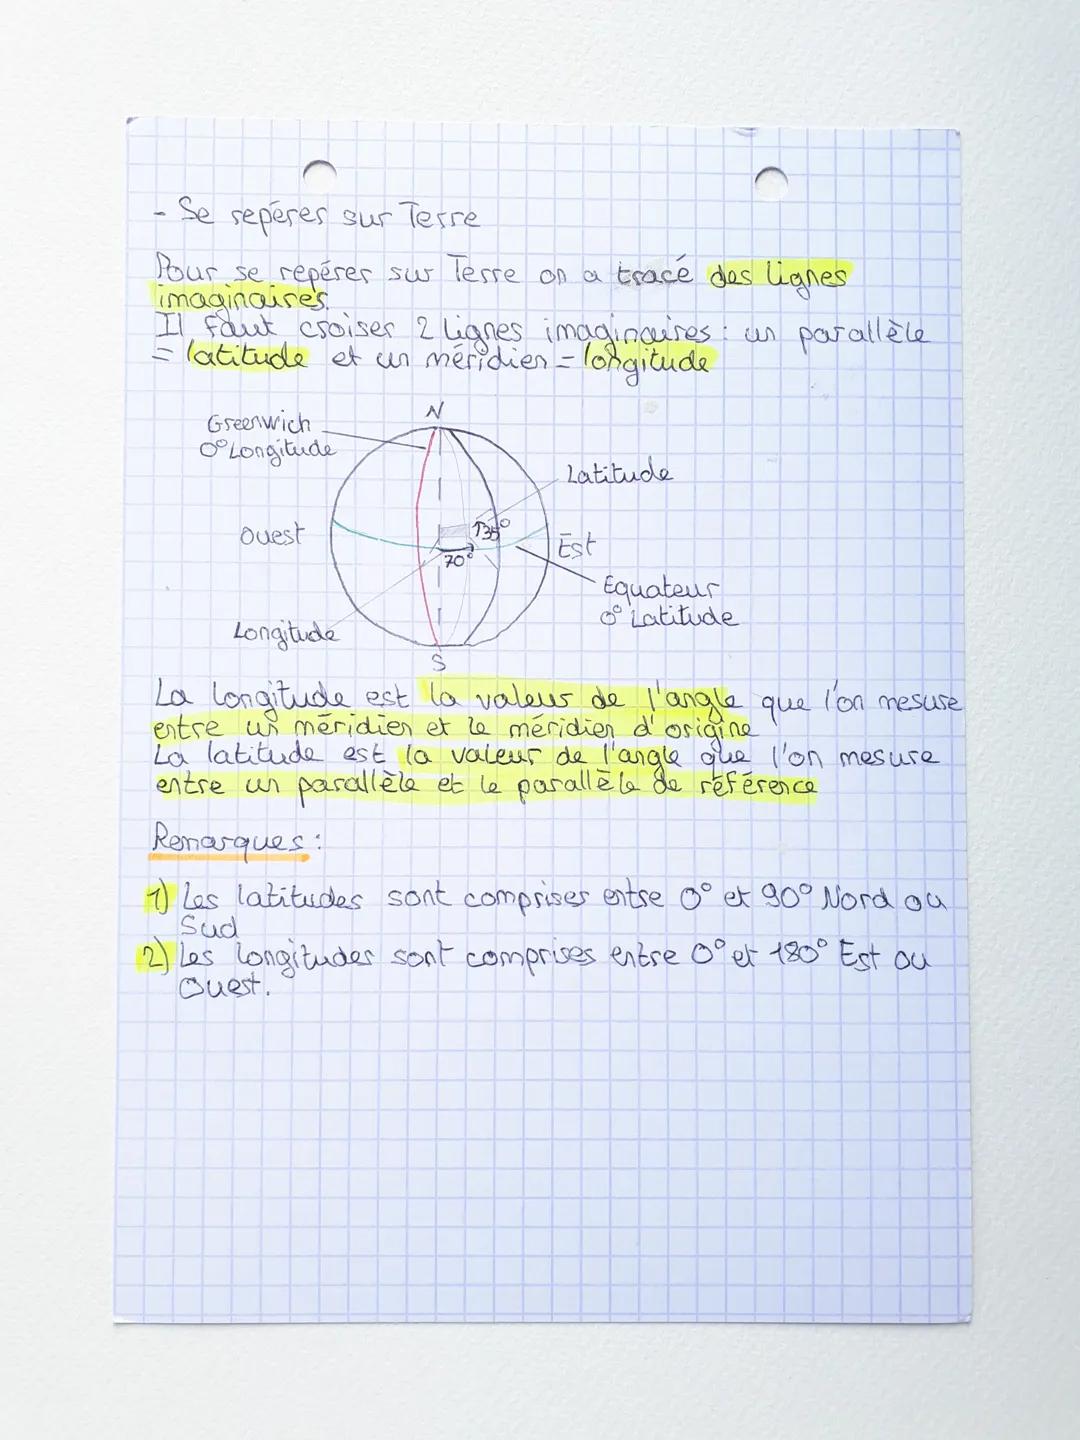 - Se repérer sur Terre
Pour se repérer sur Terre on a tracé des lignes
imaginaires.
Il faut croiser 2 lignes imaginaires : un parallèle
= latitude et un méridien = longitude
N
Greenwich
0° Longitude
Latitude
Ouest
35°
70°
Est
Equateur
0° Latitude
Longitude
S
La longitude est la valeur de l'angle que l'on mesure
entre un méridien et le méridien d'origine
La latitude est la valeur de l'angle que l'on mesure
entre un parallèle et le parallèle de référence
Remarques :
1) Les latitudes sont comprises entre 0° et 90° Nord ou
Sud
2) Les longitudes sont comprises entre 0° et 180° Est ou
Ouest.